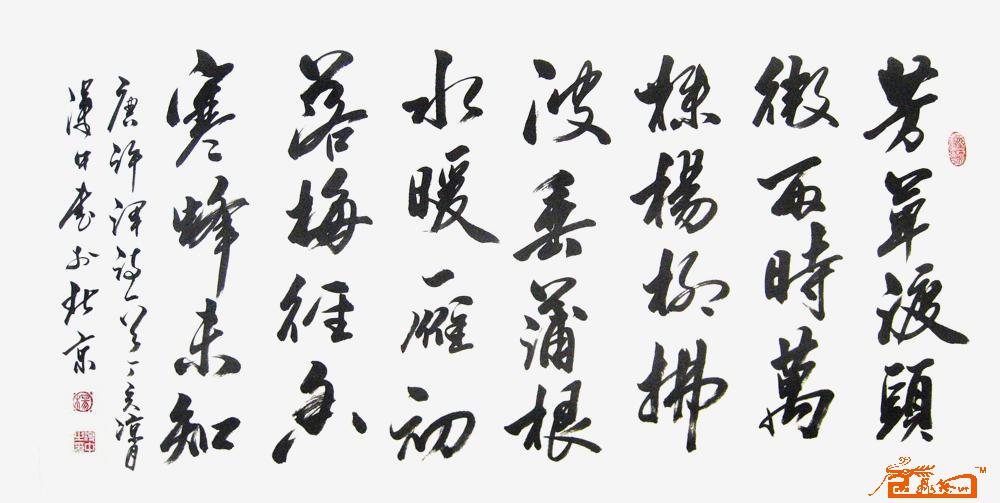 芳草渡頭
微雨時萬
株楊柳拂
波垂蒲根
水暖雁初
落梅徑香
寒蜂未知
唐許渾詩一首丁亥涼月
漢中書於北京